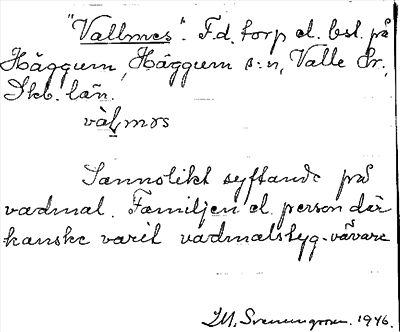 "Vallmes". F.d. torp el. bsl. på
Häggum, Häggum s:n, Valle hr.,
Skb. län.
Sannolikt syftande på
vadmal. Familjen el. person där
kanske varit vadmalstyg-vävare
1946.